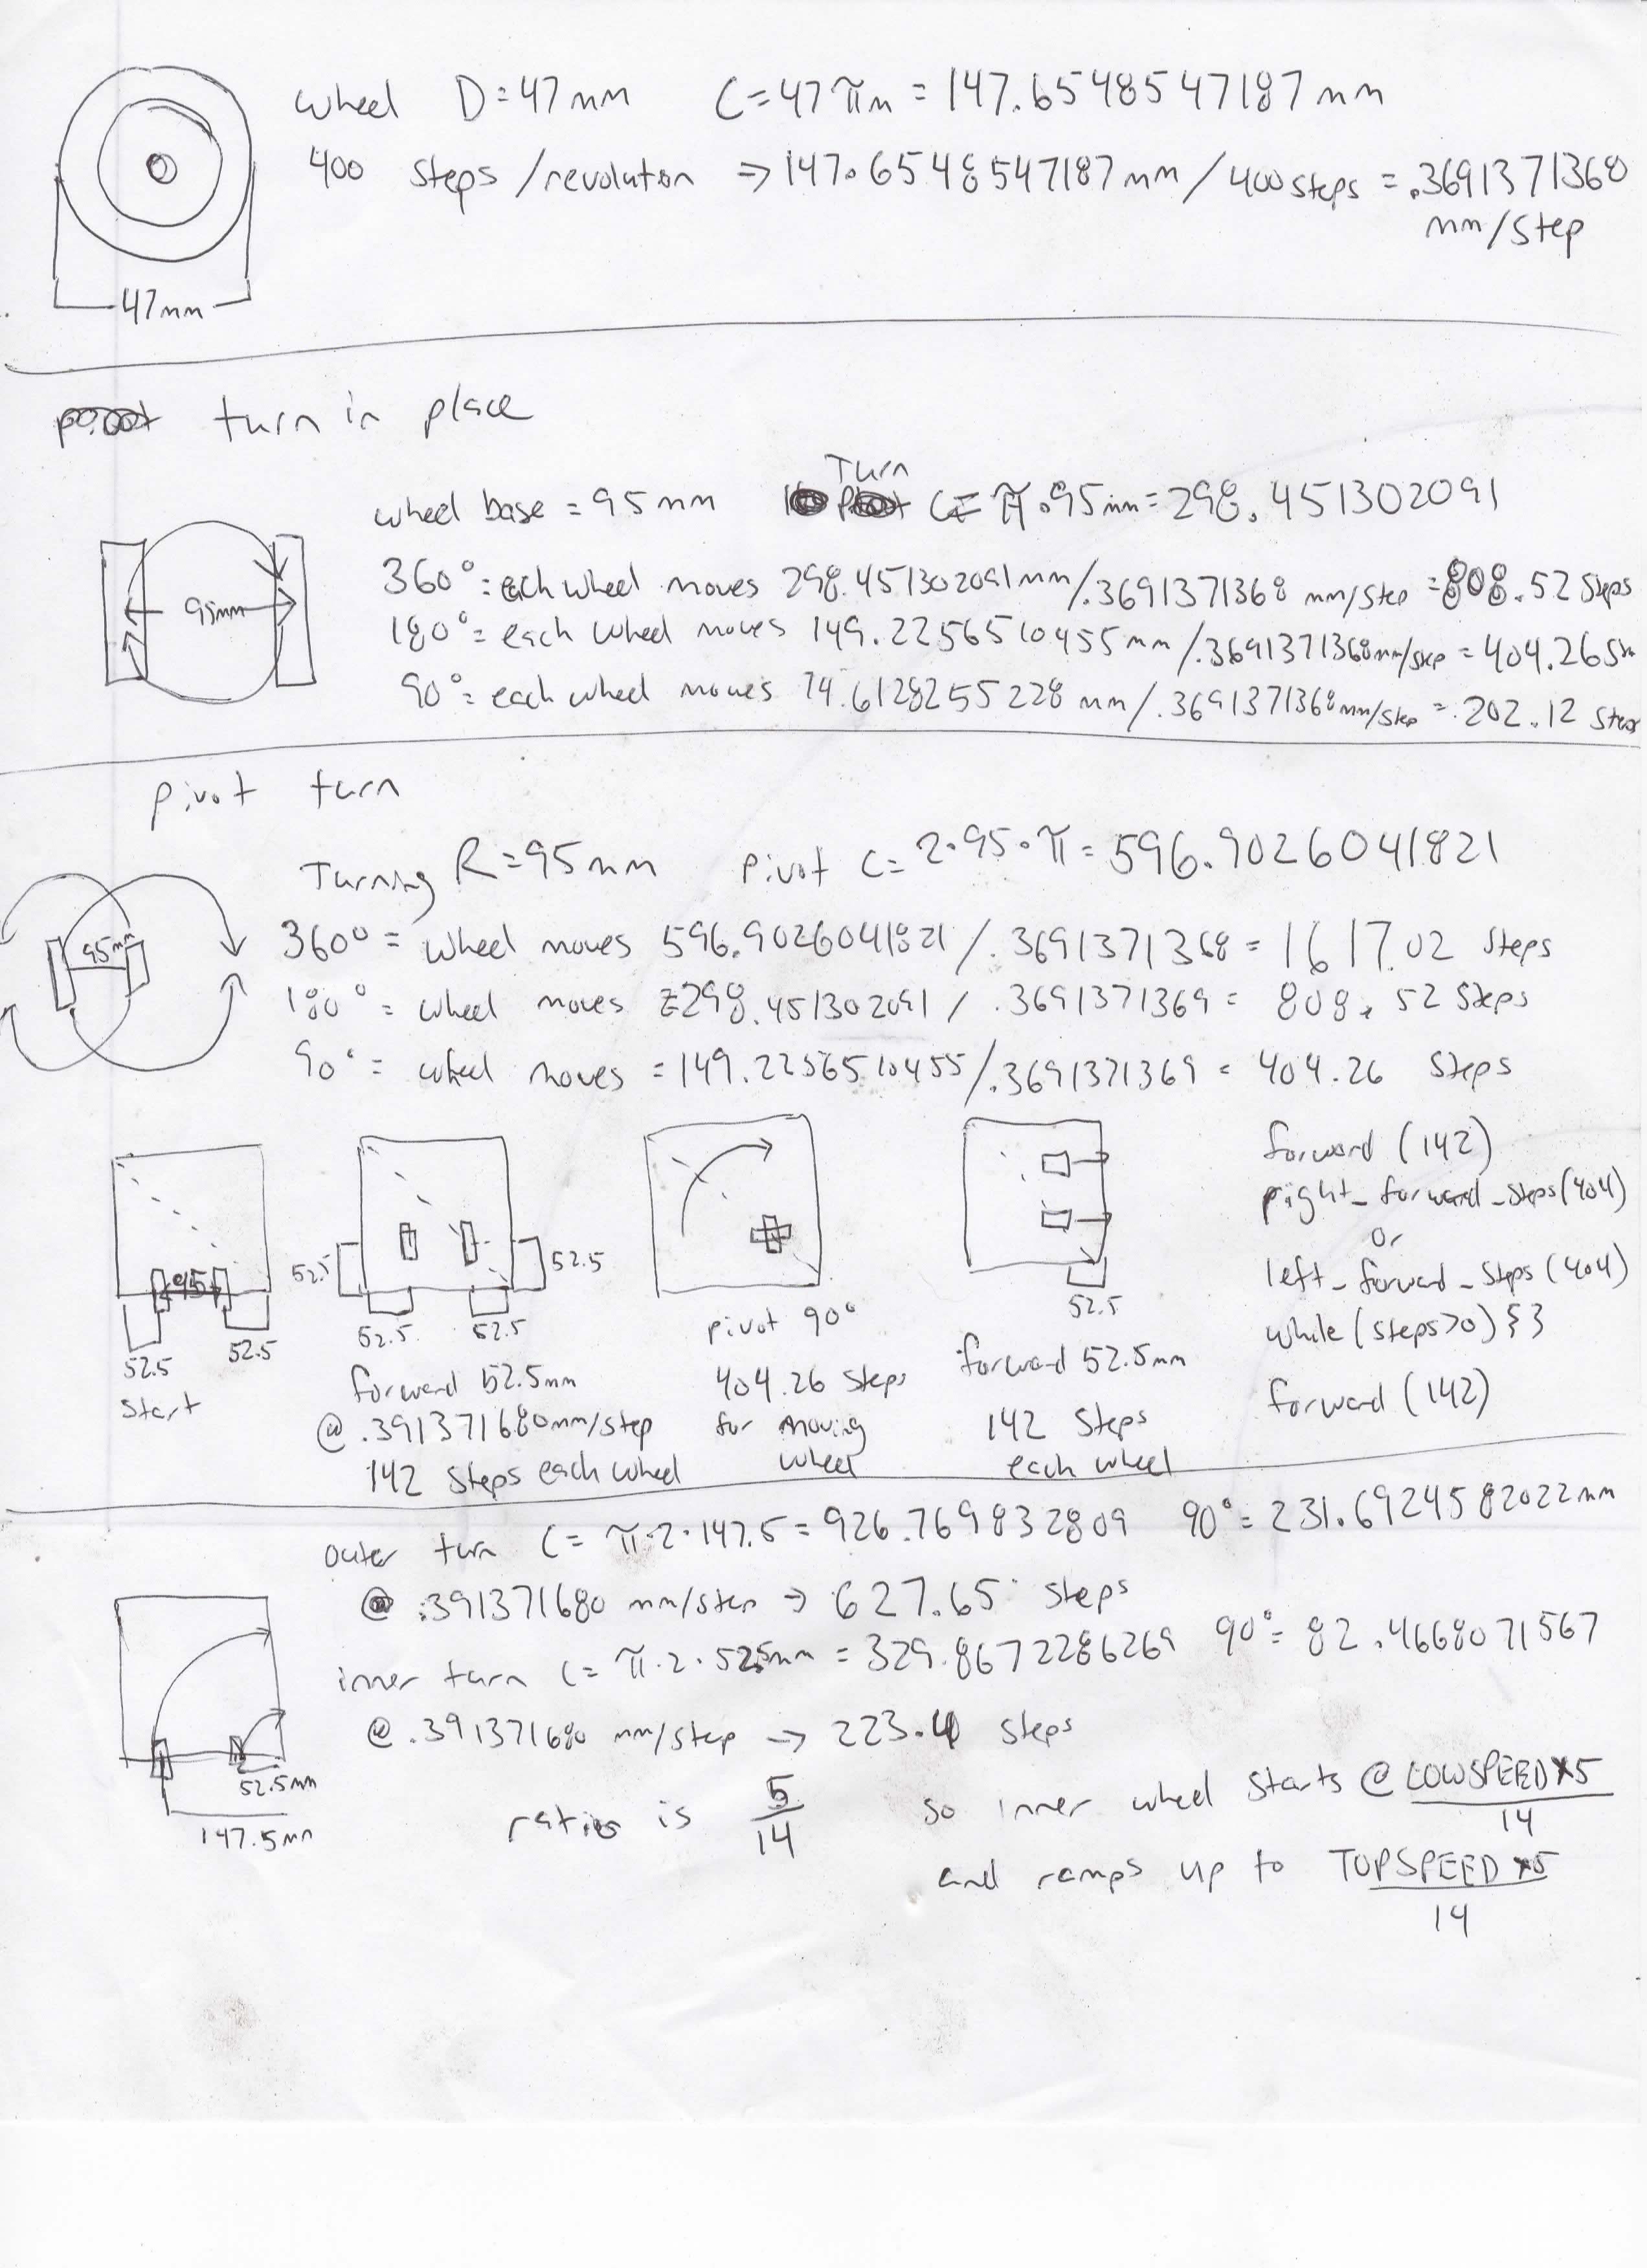 wheel D=47mm C=47πm = 147.6548547187mm
400 steps/revolution => 147.6548547187mm/400steps = .3691371368
mm/step
47mm
turn in place
Turn
wheel base = 95mm C= π.95mm=298.451302091
360°= each wheel moves 298.451302091mm/.3691371368 mm/step =808.52 Steps
95mm
180°= each wheel moves 149.2256510455mm/.3691371368mm/step = 404.26 St
90°= each wheel moves 74.6128255228mm/.3691371368mm/step = 202.12 Steps
pivot turn
Turning R=95mm Pivot C= 2.95.π= 596.9026041821
95mm
360° = wheel moves 596.9026041821/.3691371368 = 1617.02 Steps
180° = wheel moves =298.451302091/.3691371369= 808.52 Steps
90° = wheel moves =149.2256510455/.3691371369 = 404.26 Steps
95
52.5
52.5
Start
52.5
52.5
52.5
52.5
forward 52.5mm
@ .391371680mm/step
142 Steps each wheel
pivot 90°
404.26 Steps
for moving
wheel
52.5
forward 52.5mm
142 Steps
each wheel
forward (142)
right_forward_steps(404)
or
left_forward_steps(404)
while(steps>0){}
forward (142)
outer turn C= π.2.147.5=926.769832809 90°=231.6924582022mm
@ .391371680 mm/step → 627.65 steps
inner turn C= π.2.52.5mm = 329.8672286269 90°= 82.4668071567
@ .391371680 mm/step → 223.4 steps
52.5mm
147.5mm
ratio is 5/14 so inner wheel starts @ LOWSPEED*5
14
and ramps up to TOPSPEED*5
14